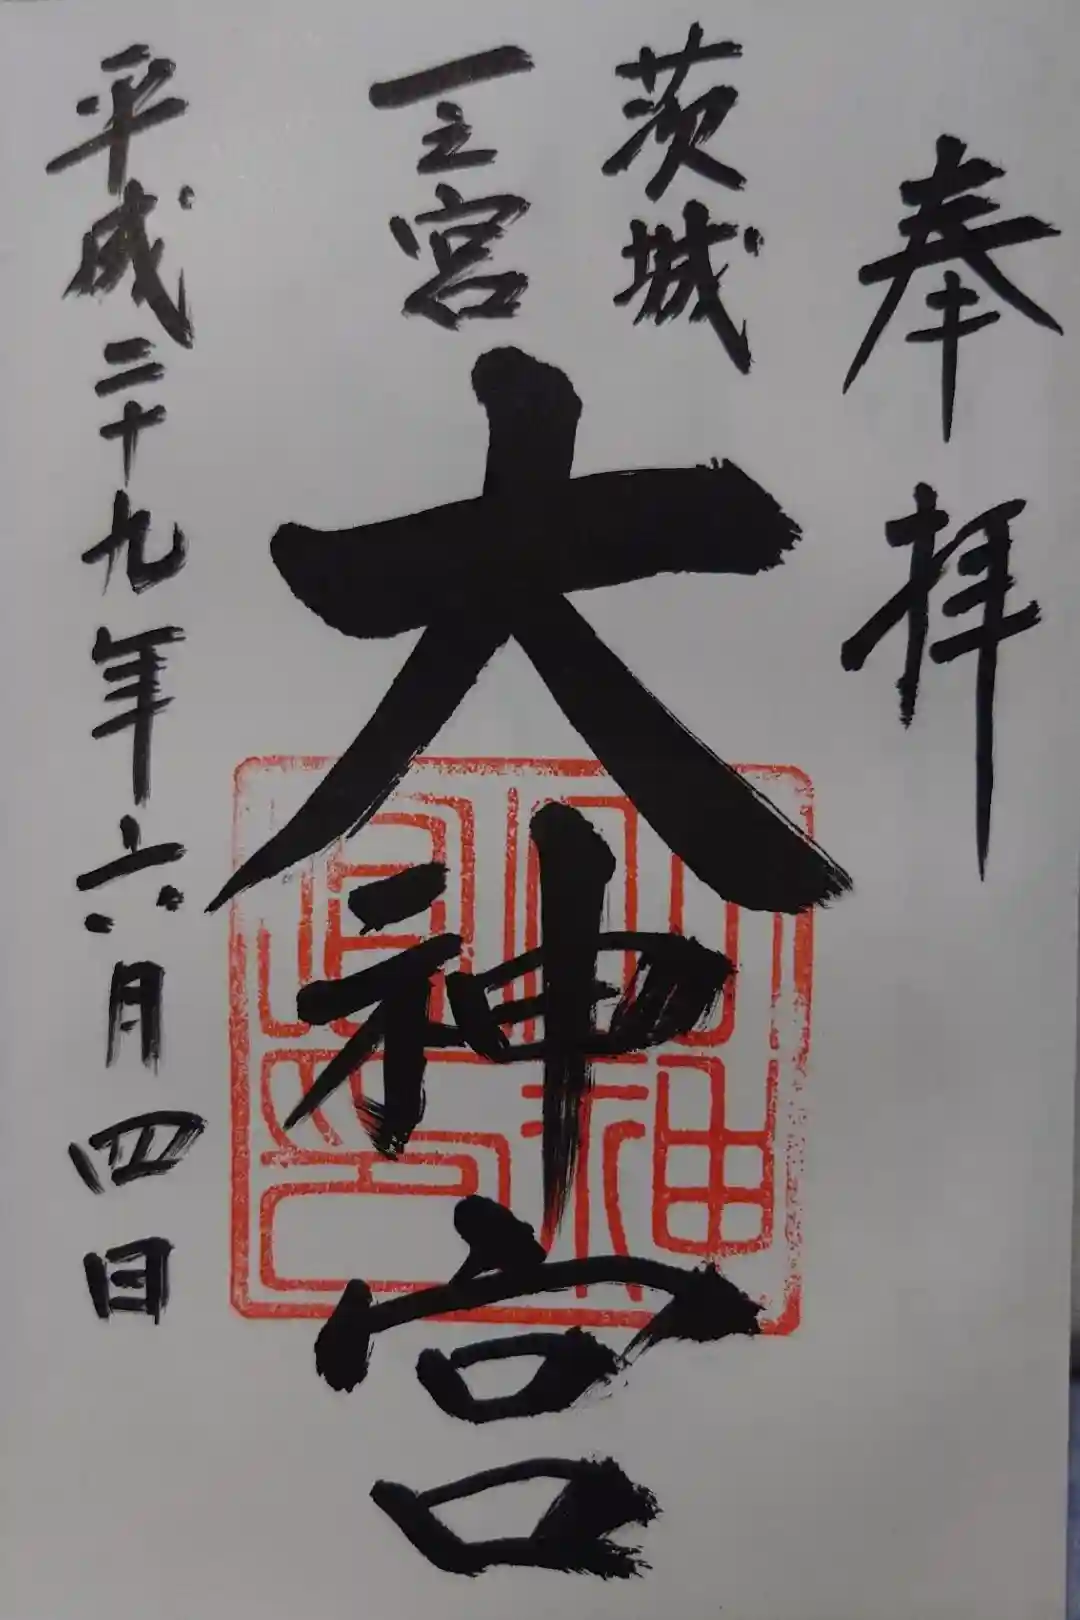 奉拝
茨城
一之宮
大神宮
平成二十九年六月四日